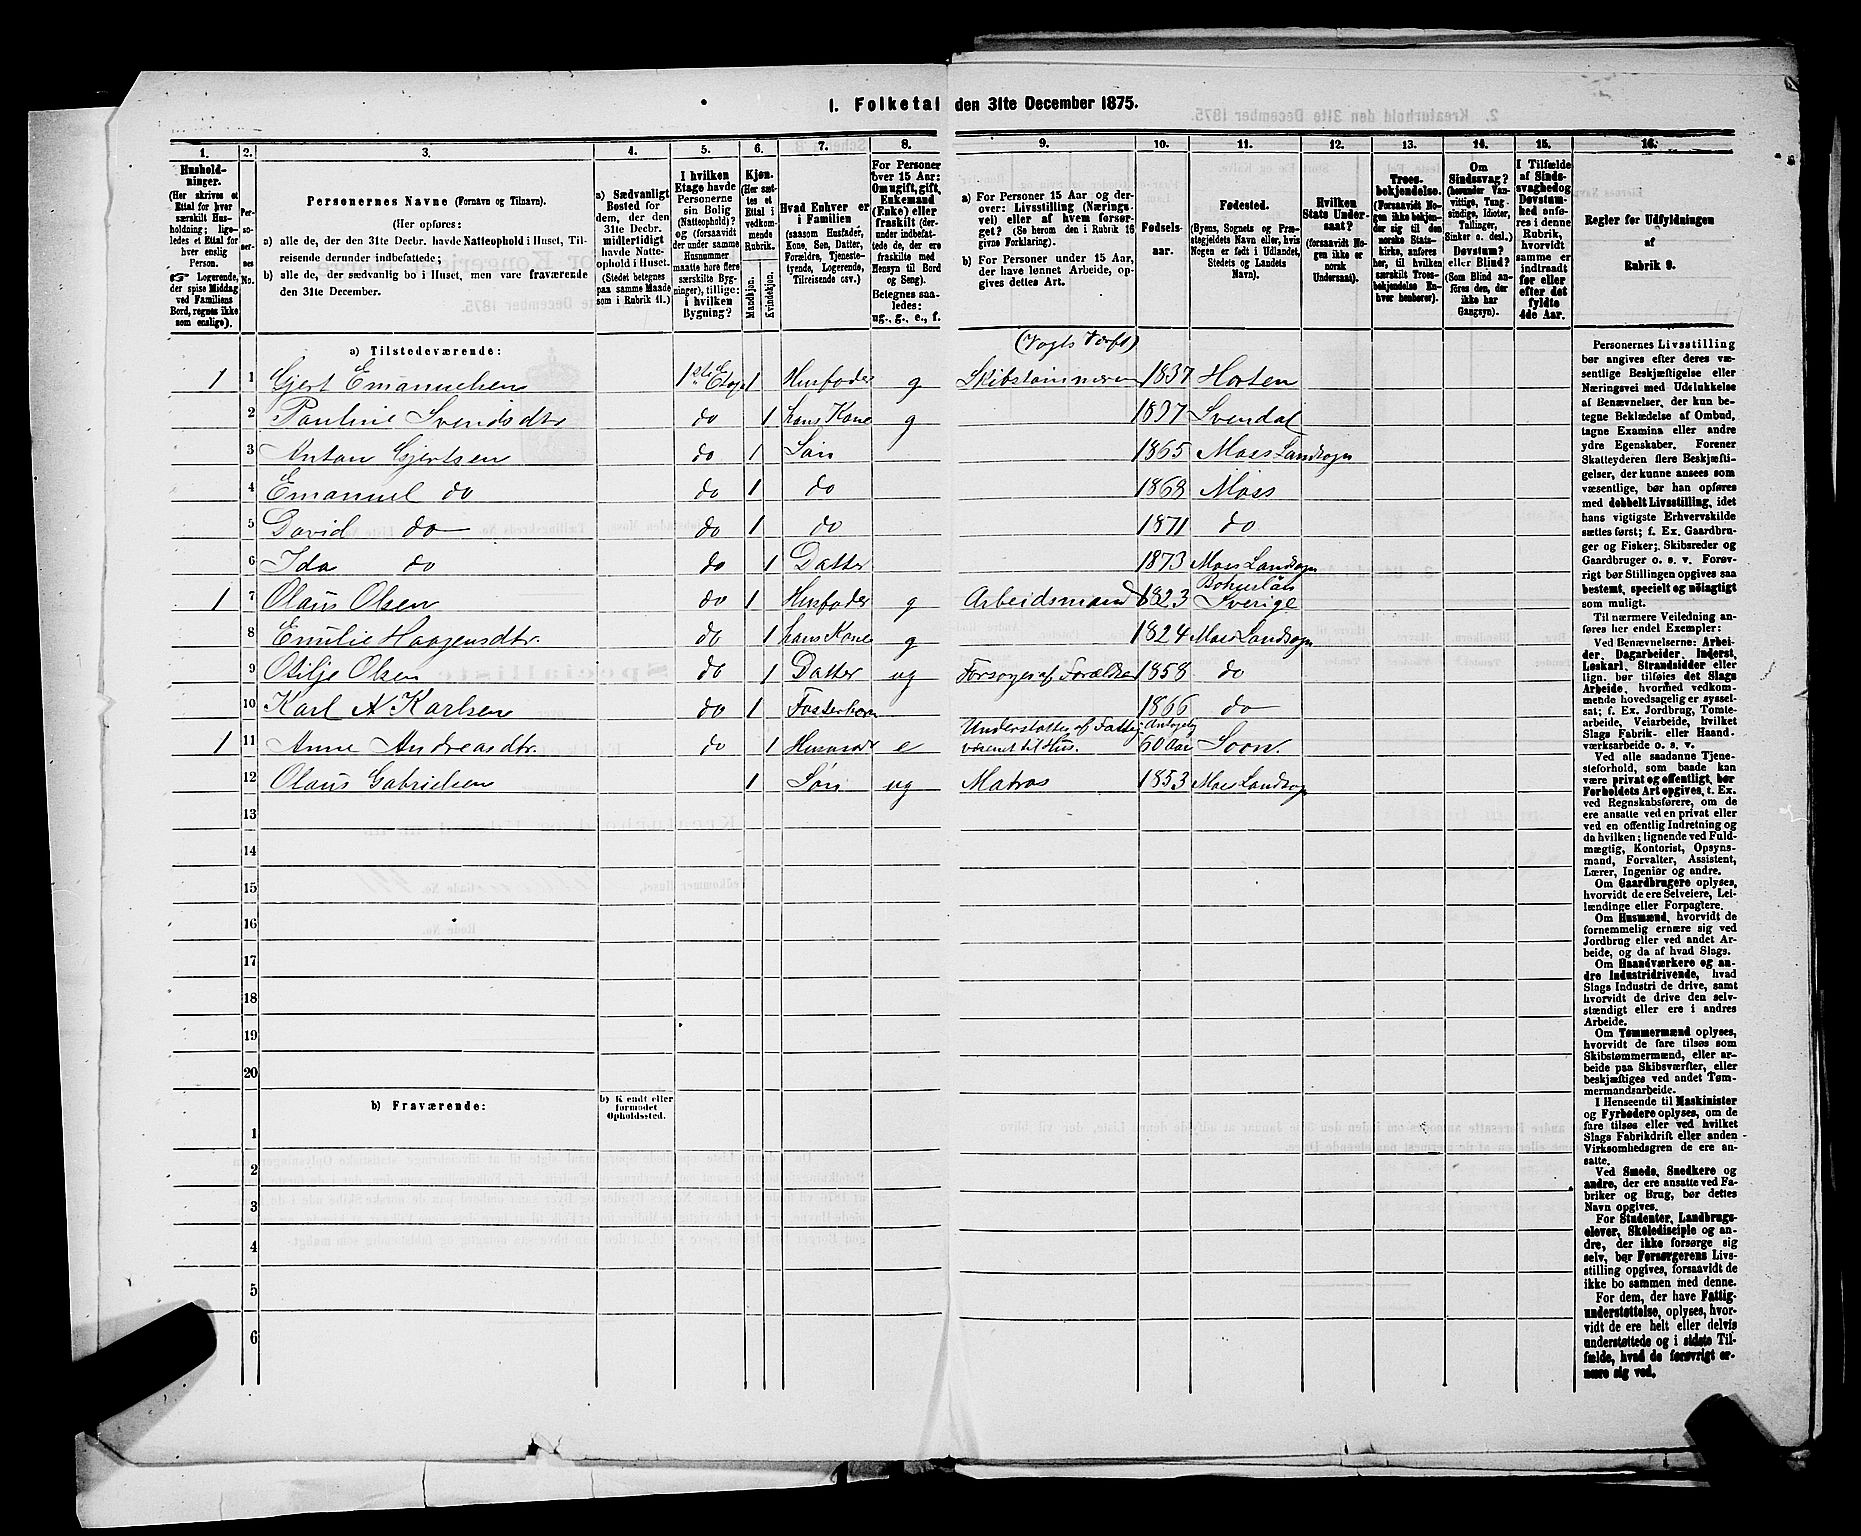 1. Folketal den 31te December 1875.
1. 2. 3. 4. 5. 6. 7. 8. 9. 10. 11. 12. 13. 14. 15. 16.
Hushold-
ninger.
(Her skrives et
Ettal for hver
særskilt Hus-
holdning; lige-
ledes et Ettal for
hver enslig
Person.
☞ Logerende,
der spise Middag
ved Familiens
Bord, regnes ikke
som enslige).
Per-
soner-
nes
No.
Personernes Navne (Fornavn og Tilnavn).
(Her opføres:
a) alle de, der den 31te Decbr. havde Natteophold i Huset, Til-
reisende derunder indbefattede;
b) alle de, der sædvanlig bo i Huset, men vare fraværende
den 31te December.
a) Sædvanligt
Bosted for
dem, der den
31te Decbr.
midlertidigt
havde Natte-
ophold i Huset.
(Stedet betegnes
paa samme Maade
som i Rubrik 11.)
I hvilken
Etage havde
Personerne
sin Bolig
(Natteophold)?
og (forsaavidt
der under samme
Husnummer
maatte høre flere
særskilte Byg-
ninger), tillige:
i hvilken
Bygning?
Kjøn.
(Her sæt-
tes et
Ettal i
vedkom-
mende
Rubrik.
Mandkjøn.
Kvindekjøn.
Hvad Enhver er
i Familien
(saasom Husfader,
Kone, Søn, Datter,
Forældre, Tjeneste-
tyende, Logerende,
Tilreisende osv.)
For Personer
over 15 Aar:
Om ugift, gift,
Enkemand
(Enke) eller
fraskilt (der-
under indbefat-
tede de, der ere
fraskilte med
Hensyn til Bord
og Seng).
Betegnes saa-
ledes:
ug., g., e., f.
a) For Personer 15 Aar og der-
over: Livsstilling (Nærings-
vei) eller af hvem forsør-
get? (Se herom den i Rubrik 16
givne Forklaring).
b) For Personer under 15 Aar,
der have lønnet Arbeide, op-
gives dettes Art.
Fødsels-
aar.
Fødested.
(Byens, Sognets og Præ-
stegjeldets Navn eller, hvis
Nogen er født i Udlandet,
Stedets og Landets
Navn).
Hvilken
Stats Under-
saat?
(forsaavidt No-
gen ikke er
norsk
Undersaat).
Troes-
bekjendelse.
(Forsaavidt No-
gen ikke bekjen-
der sig til den
norske Stats-
kirke, anføres
her, til hvilken
særskilt Troes-
bekjendelse En-
hver henhører).
Om
Sindssvag?
(herunder Van-
vittige, Tung-
sindige, Idioter,
Tullinger,
Sinker o. desl.)
Døvstum?
eller Blind?
(Som Blind an-
føres den, der
ikke har
Gangsyn).
I Tilfælde
af Sinds-
svaghed og
Døvstum-
hed anfø-
res i denne
Rubrik,
hvorvidt
samme er
indtraadt
før eller
efter det
fyldte
4de Aar.
Regler for Udfyldningen
af
Rubrik 9.
a) Tilstedeværende:
(Vogts Værft)
1 1 Gjert Emanuelsen 1ste Etage 1 Husfader g Skibstømmermand 1837 Horten
2 Pauline Svendsdtr do 1 hans Kone g 1837 Svendal
3 Anton Gjertsen do 1 Søn 1865 Moss Landsogn
4 Emanuel do do 1 do 1868 Moss
5 David do do 1 do 1871 do
6 Ida do do 1 Datter 1873 Moss Landsogn
Bohuslän
1 7 Olaus Olsen do 1 Husfader g Arbeidsmand 1823 Sverige
8 Emilie Haagensdtr. do 1 hans Kone g 1824 Moss Landsogn
9 Otilje Olsen do 1 Datter ug Forsørges af Forældre 1858 do
10 Karl A Karlsen do 1 Fosterbarn 1866 do
Understøttes af Fattig- Antagelig
1 11 Anne Andreasdtr. do 1 Husmoder e væsenet til Hus. 60 Aar Soon.
12 Olaus Gabrielsen 1 Søn ug Matros 1853 Moss Landsogn
13
14
15
16
17
18
19
20
b) Fraværende:
b) Kjendt eller
formodet
Opholdssted.
1
2
3
4
5
6
Personernes Livsstilling
bør angives efter deres væ-
sentlige Beskjæftigelse eller
Næringsvei med Udelukkelse
af Benævnelser, der kun be-
tegne Beklædelse af Ombud,
tagne Examina eller andre
ydre Egenskaber. Forener
Skatteyderen flere Beskjæfti-
gelser, der kunne ansees som
væsentlige, bør han opføres
med dobbelt Livsstilling, idet
hans vigtigste Erhvervskilde
sættes først; f. Ex. Gaardbru-
ger og Fisker; Skibsreder og
Gaardbruger o. s. v. Forøv-
rigt bør Stillingen opgives saa
bestemt, specielt og nøiagtigt
som muligt.
Til nærmere Veiledning an-
føres her endel Exempler:
Ved Benævnelserne: Arbei-
der, Dagarbeider, Inderst,
Løskarl, Strandsidder eller
lign. bør tilføies det Slags
Arbeide, hvormed vedkom-
mende hovedsagelig er syssel-
sat; f. Ex. Jordbrug, Tomte-
arbeide, Veiarbeide, hvilket
Slags Fabrik- eller Haand-
værksarbeide o. s. v.
Ved alle saadanne Tjene-
steforhold, som baade kan
være privat og offentligt, bør
Forholdets Art opgives, t. Ex.
ved Regnskabsførere, om de
ere ansatte ved en privat eller
ved en offentlig Indretning og
da hvilken; lignende ved Fuld-
mægtig, Kontorist, Opsyns-
mand, Forvalter, Assistent,
Lærer, Ingeniør og andre.
Om Gaardbrugere oplyses,
hvorvidt de ere Selveiere, Lei-
lændinge eller Forpagtere.
Om Husmænd, hvorvidt de
fornemmelig ernære sig ved
Jordbrug eller ved andet Ar-
beide, og da af hvad Slags.
Om Haandværkere og an-
dre Industridrivende, hvad
Slags Industri de drive, samt
hvorvidt de drive den selv-
stændigt eller ere i andres
Arbeide.
Om Tømmermænd oplyses,
hvorvidt de fare tilsøs som
Skibstømmermænd, eller ar-
beide paa Skibsværfter, eller
beskjæftiges ved andet Tøm-
mermandsarbeide.
I Henseende til Maskinister
og Fyrbødere oplyses, om de
fare tilsøs eller ved hvilket
Slags Fabrikdrift eller anden
Virksomhedsgren de ere an-
satte.
Ved Smede, Snedkere og
andre, der ere ansatte ved Fa-
briker og Brug, bør dettes
Navn opgives.
For Studenter, Landbrugs-
elever, Skoledisciple og an-
dre, der ikke forsørge sig
selv, bør Forsørgerens Livs-
stilling opgives, forsaavidt de
ikke bo sammen med denne.
For dem, der have Fattig-
understøttelse, oplyses, hvor-
vidt de ere helt eller delvis
understøttede og i sidste Til-
fælde, hvad de forøvrigt er-
nære sig ved.